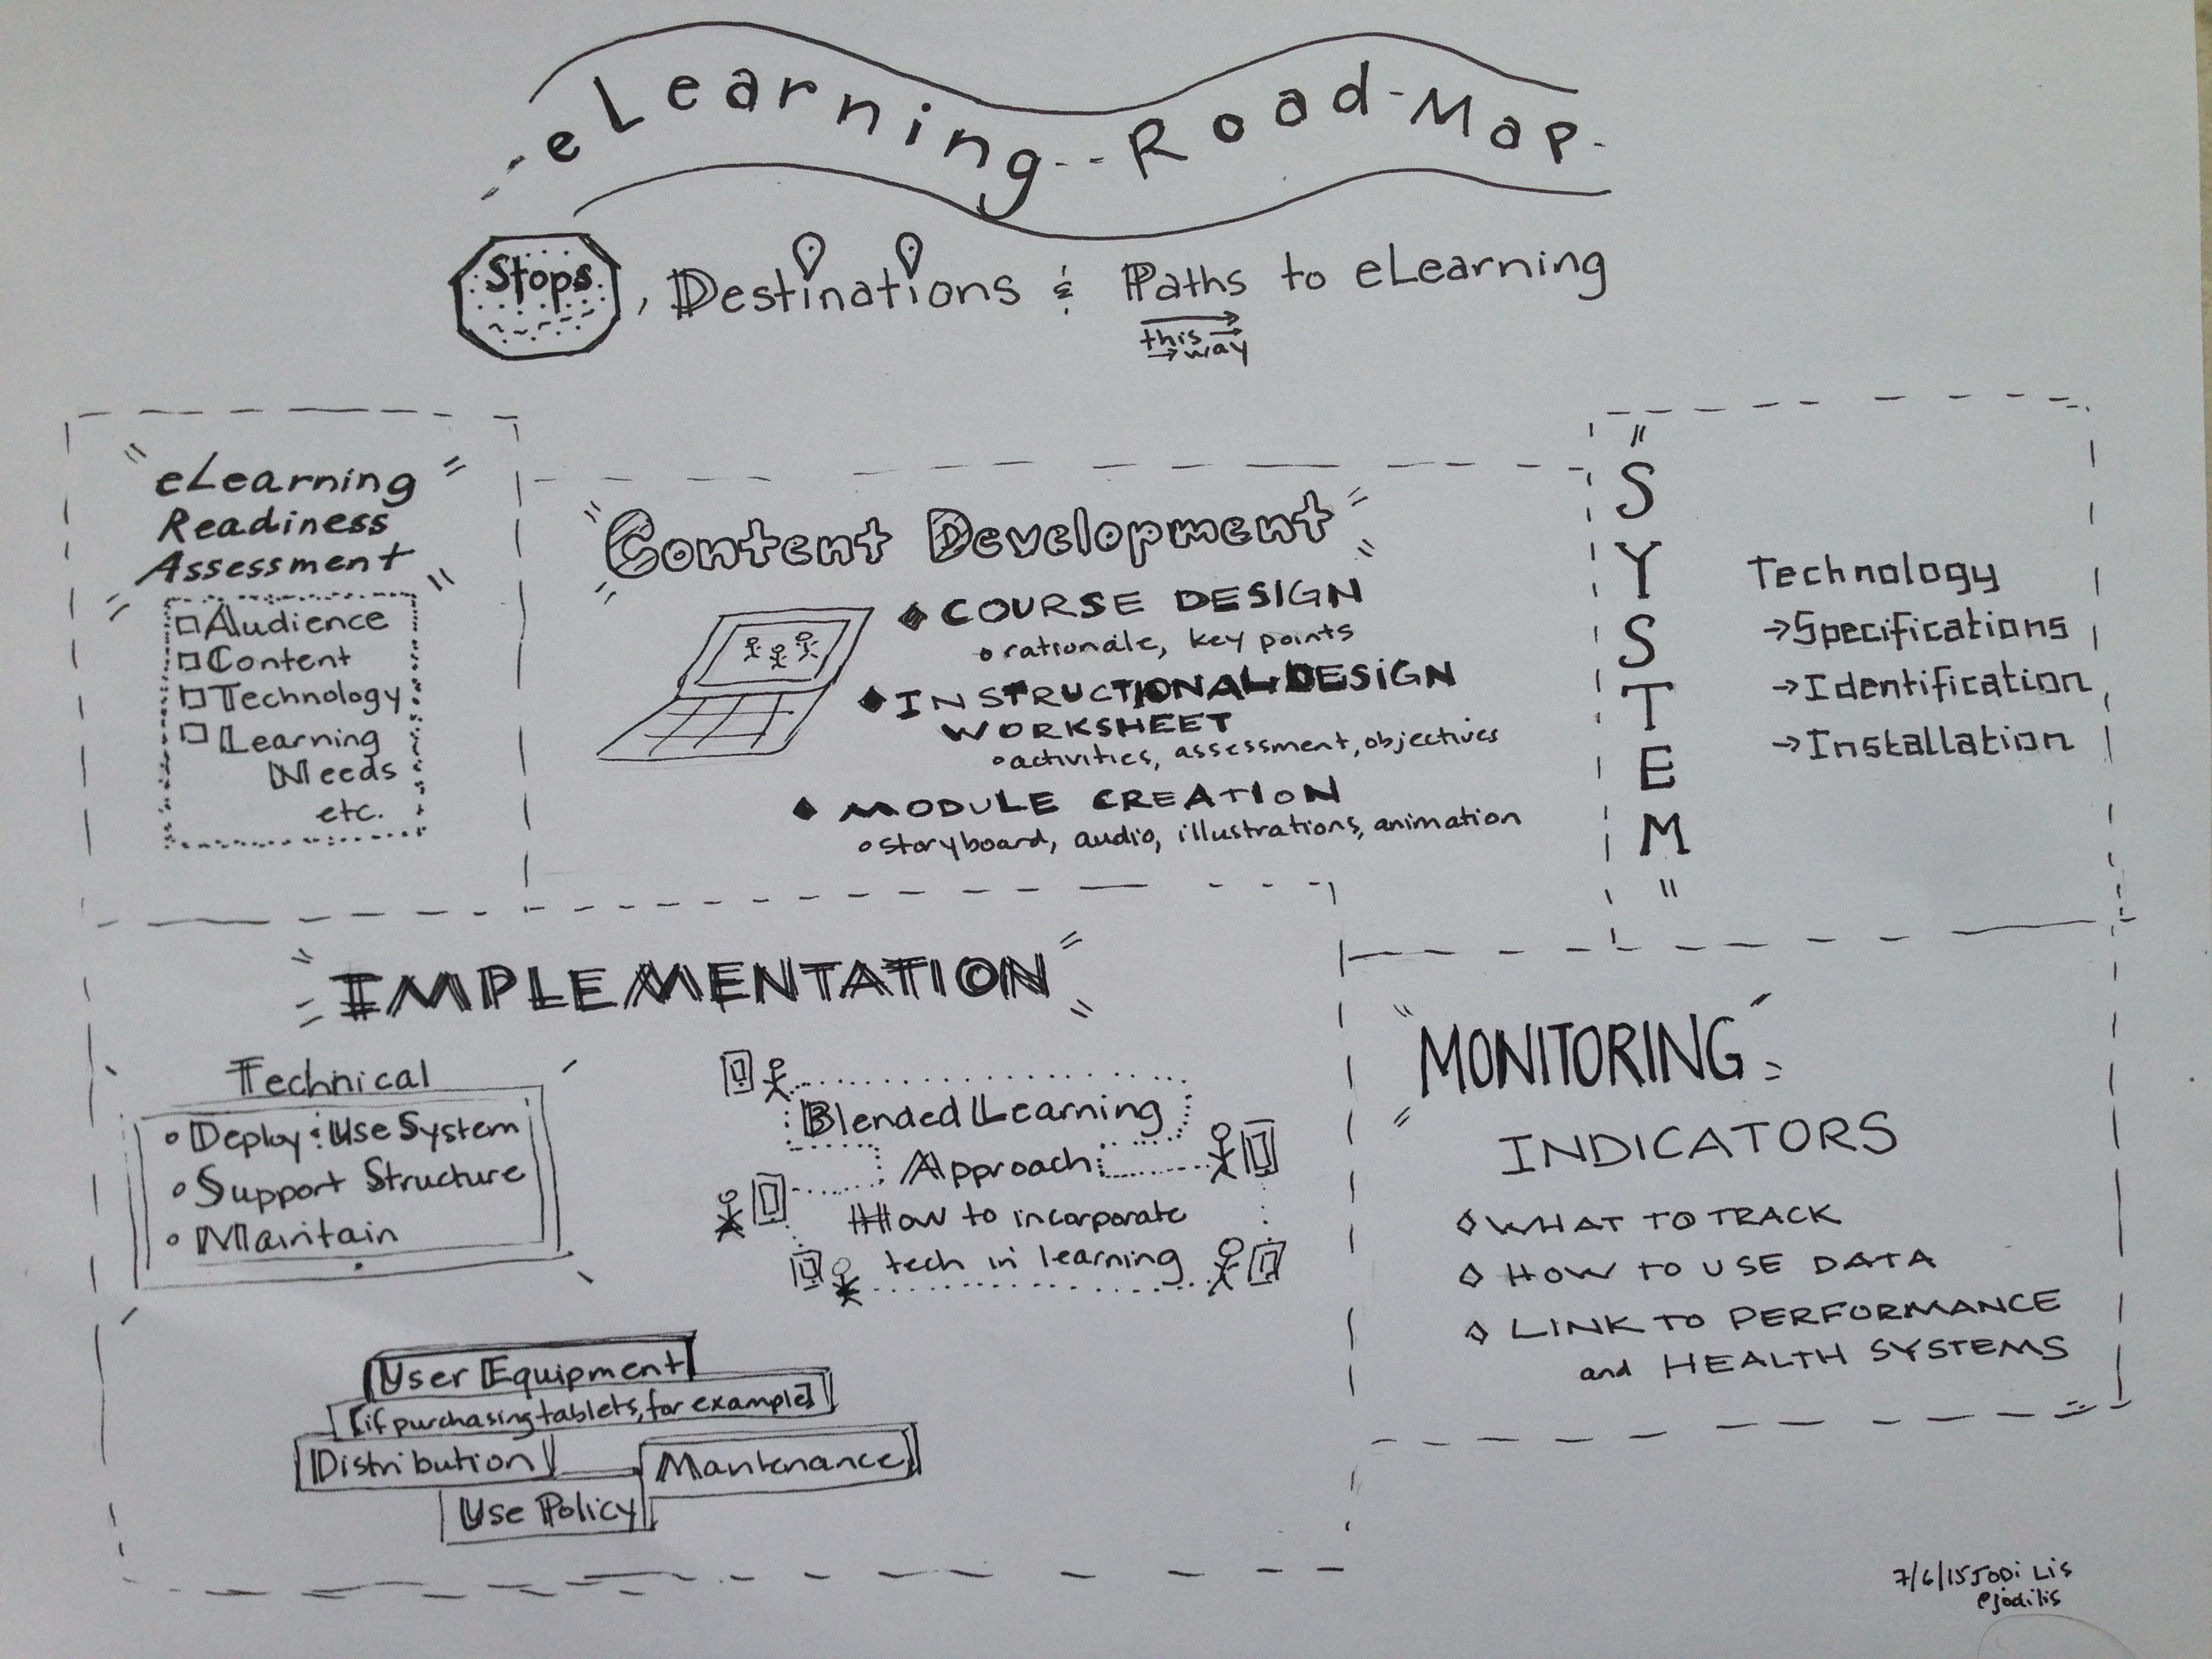 eLearning Road Map
Stops, Destinations & Paths to eLearning
this way
eLearning
Readiness
Assessment
Audience
Content
Technology
Learning
Needs
etc.
Content Development
COURSE DESIGN
rationale, key points
INSTRUCTIONAL DESIGN
WORKSHEET
activities, assessment, objectives
MODULE CREATION
storyboard, audio, illustrations, animation
SYSTEM
Technology
→Specifications
→Identification
→Installation
IMPLEMENTATION
Technical
Deploy & Use System
Support Structure
Maintain
Blended Learning
Approach
How to incorporate
tech in learning
User Equipment
[if purchasing tablets, for example]
Distribution
Mantenance
Use Policy
MONITORING
INDICATORS
WHAT TO TRACK
HOW TO USE DATA
LINK TO PERFORMANCE
and HEALTH SYSTEMS
7/6/15 JODi Lis
@jodilis